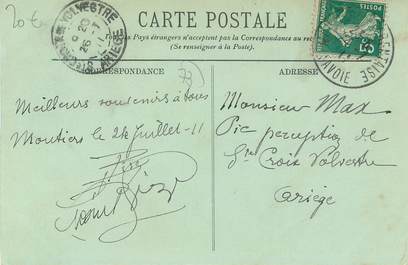 20€
CARTE POSTALE
Pays étrangers n'acceptent pas la Correspondance au
(Se renseigner à la Poste).
CORRESPONDANCE
ADRESSE
VOLVESTRE
ARIEGE
SAVOIE
73
Meilleurs souvenirs à tous
Moutiers le 24 juillet-11
Monsieur Max
Pic perception de
Ste Croix Volvestre
Ariège